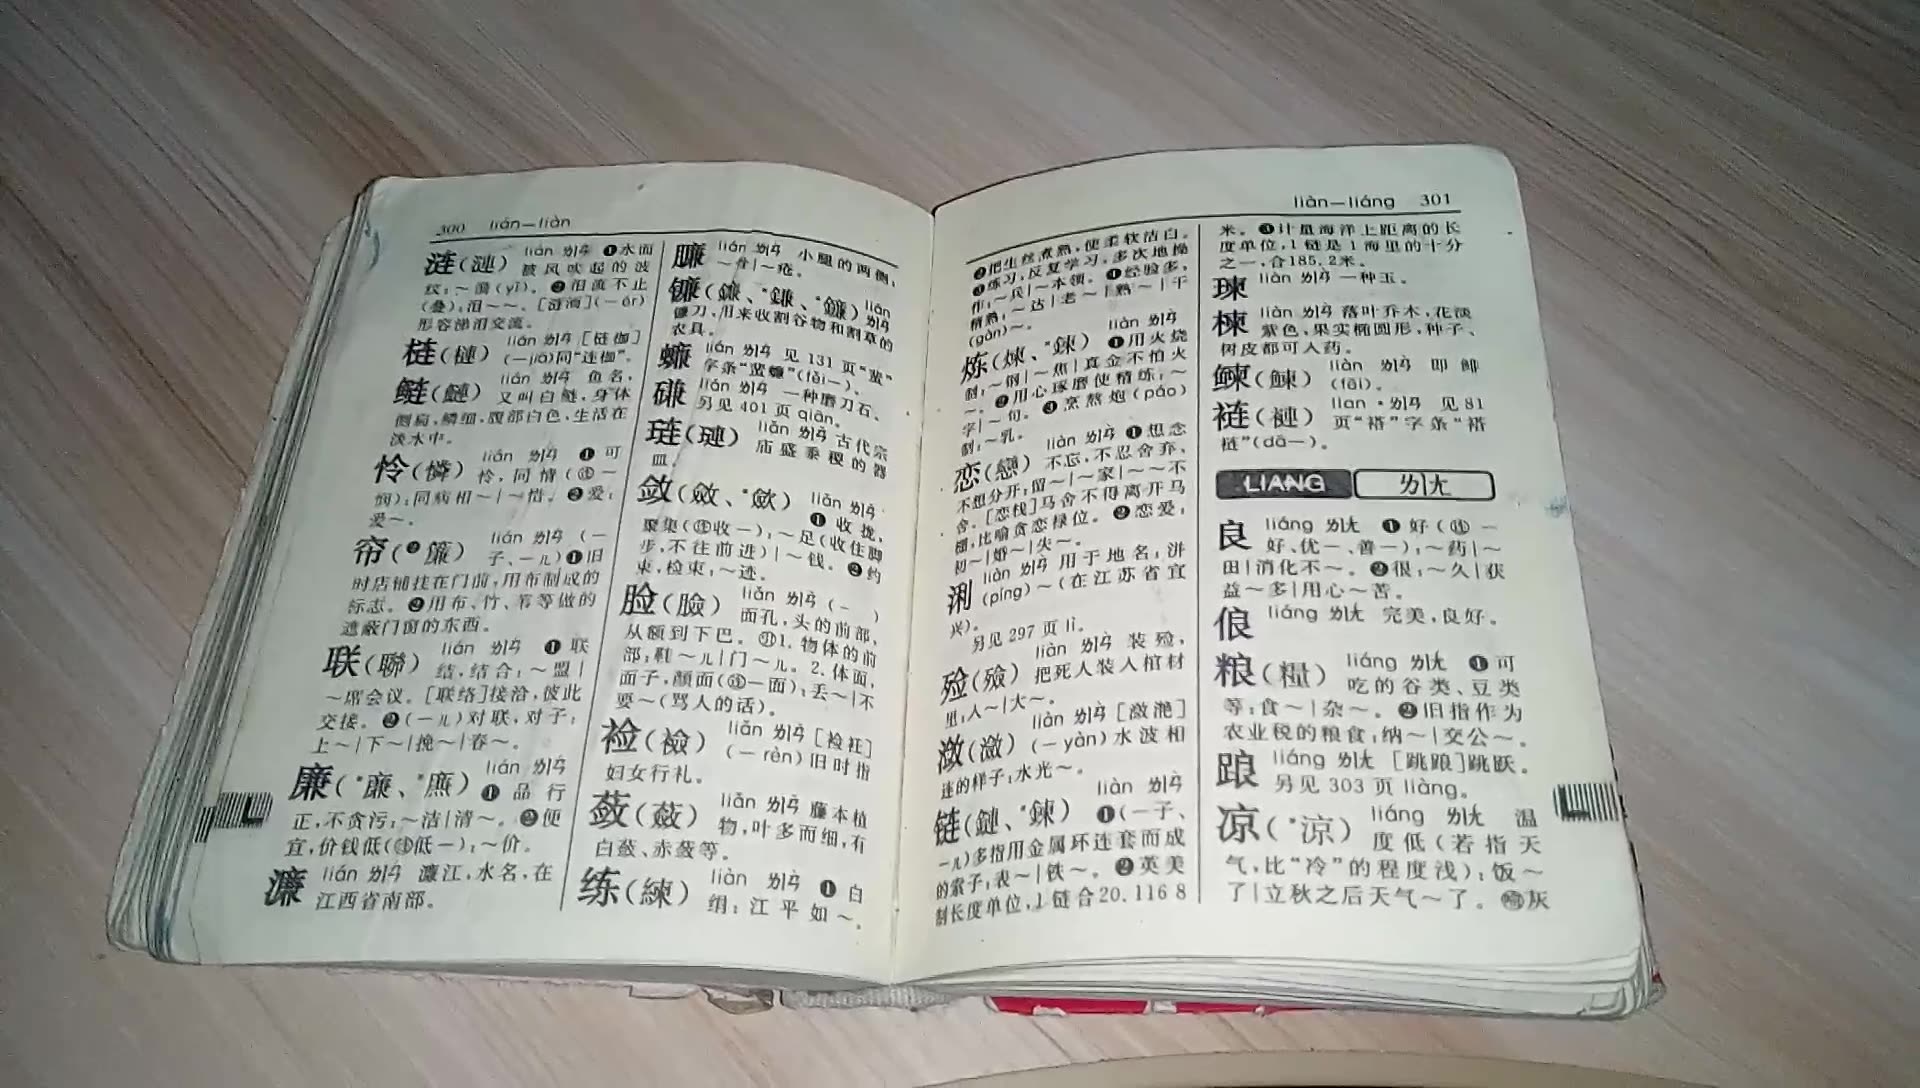 300 lián—liàn
涟(漣) lián ㄌㄧㄢˊ ❶水面
被风吹起的波
纹:～漪(yī)。❷泪流不止
(叠):泪～～。[涟洏](－ér)
形容涕泪交流。
梿(槤) lián ㄌㄧㄢˊ [梿枷]
(－jiā)同“连枷”。
鲢(鰱) lián ㄌㄧㄢˊ 鱼名,
又叫白鲢,身体
侧扁,鳞细,腹部白色,生活在
淡水中。
怜(憐) lián ㄌㄧㄢˊ ❶可
怜,同情(㊥－
悯):同病相～|～惜。❷爱:
爱～。
帘(❷簾) lián ㄌㄧㄢˊ (－
子、－儿)❶旧
时店铺挂在门前,用布制成的
标志。❷用布、竹、苇等做的
遮蔽门窗的东西。
联(聯) lián ㄌㄧㄢˊ ❶联
结,结合:～盟|
～席会议。[联络]接洽,彼此
交接。❷(－儿)对联,对子:
上～|下～|挽～|春～。
廉(*亷、*㢘) lián ㄌㄧㄢˊ
❶品行
正,不贪污:～洁|清～。❷便
宜,价钱低(㊥低－):～价。
濂 lián ㄌㄧㄢˊ 濂江,水名,在
江西省南部。
臁 lián ㄌㄧㄢˊ 小腿的两侧:
～骨|～疮。
镰(鐮、*鎌、*鐮) lián ㄌㄧㄢˊ
镰刀,用来收割谷物和割草的
农具。
蠊 lián ㄌㄧㄢˊ 见 131 页“蜚”
字条“蜚蠊”(fěi－)。
磏 lián ㄌㄧㄢˊ 一种磨刀石。
另见 401 页 qiān。
琏(璉) liǎn ㄌㄧㄢˇ 古代宗
庙盛黍稷的器
皿。
敛(斂、*歛) liǎn ㄌㄧㄢˇ
❶收拢,
聚集(㊥收－):～足(收住脚
步,不往前进)|～钱。❷约
束,检束:～迹。
脸(臉) liǎn ㄌㄧㄢˇ (－)
面孔,头的前部,
从额到下巴。㊗1.物体的前
部:鞋～儿|门～儿。2.体面,
面子,颜面(㊥－面):丢～|不
要～(骂人的话)。
裣(襝) liǎn ㄌㄧㄢˇ [裣衽]
(－rèn)旧时指
妇女行礼。
蔹(蘞) liǎn ㄌㄧㄢˇ 藤本植
物,叶多而细,有
白蔹、赤蔹等。
练(練) liàn ㄌㄧㄢˋ ❶白
绢:江平如～。
liàn—liáng 301
❷把生丝煮熟,使柔软洁白。
❸练习,反复学习,多次地操
作:～兵|～本领。❹经验多,
精熟:～达|老～|熟～|干
(gàn)～。
炼(煉、*鍊) liàn ㄌㄧㄢˋ
❶用火烧
制:～钢|～焦|真金不怕火
～。❷用心琢磨使精练:～
字|～句。❸烹熬炮(páo)
制:～乳。
恋(戀) liàn ㄌㄧㄢˋ ❶想念
不忘,不忍舍弃,
不想分开:留～|～家|～～不
舍。[恋栈]马舍不得离开马
棚,比喻贪恋禄位。❷恋爱:
初～|婚～|失～。
浰 liàn ㄌㄧㄢˋ 用于地名:洴
(píng)～(在江苏省宜
兴)。
另见 297 页 lì。
殓(殮) liàn ㄌㄧㄢˋ 装殓,
把死人装入棺材
里:入～|大～。
潋(瀲) liàn ㄌㄧㄢˋ [潋滟]
(－yàn)水波相
连的样子:水光～。
链(鏈、*鍊) liàn ㄌㄧㄢˋ
❶(－子、
－儿)多指用金属环连套而成
的索子:表～|铁～。❷英美
制长度单位,1 链合20.116 8
米。❸计量海洋上距离的长
度单位,1 链是 1 海里的十分
之一,合185.2米。
瑓 liàn ㄌㄧㄢˋ 一种玉。
楝 liàn ㄌㄧㄢˋ 落叶乔木,花淡
紫色,果实椭圆形,种子、
树皮都可入药。
鰊(鰊) liàn ㄌㄧㄢˋ 即鲱
(fēi)。
裢(褳) lian ·ㄌㄧㄢ 见 81
页“褡”字条“褡
裢”(dā－)。
LIANG ㄌㄧㄤ
良 liáng ㄌㄧㄤˊ ❶好(㊥－
好、优－、善－):～药|～
田|消化不～。❷很:～久|获
益～多|用心～苦。
俍 liáng ㄌㄧㄤˊ 完美,良好。
粮(糧) liáng ㄌㄧㄤˊ ❶可
吃的谷类、豆类
等:食～|杂～。❷旧指作为
农业税的粮食:纳～|交公～。
踉 liáng ㄌㄧㄤˊ [跳踉]跳跃。
另见 303 页 liàng。
凉(*涼) liáng ㄌㄧㄤˊ 温
度低(若指天
气,比“冷”的程度浅):饭～
了|立秋之后天气～了。㊗灰
L
L